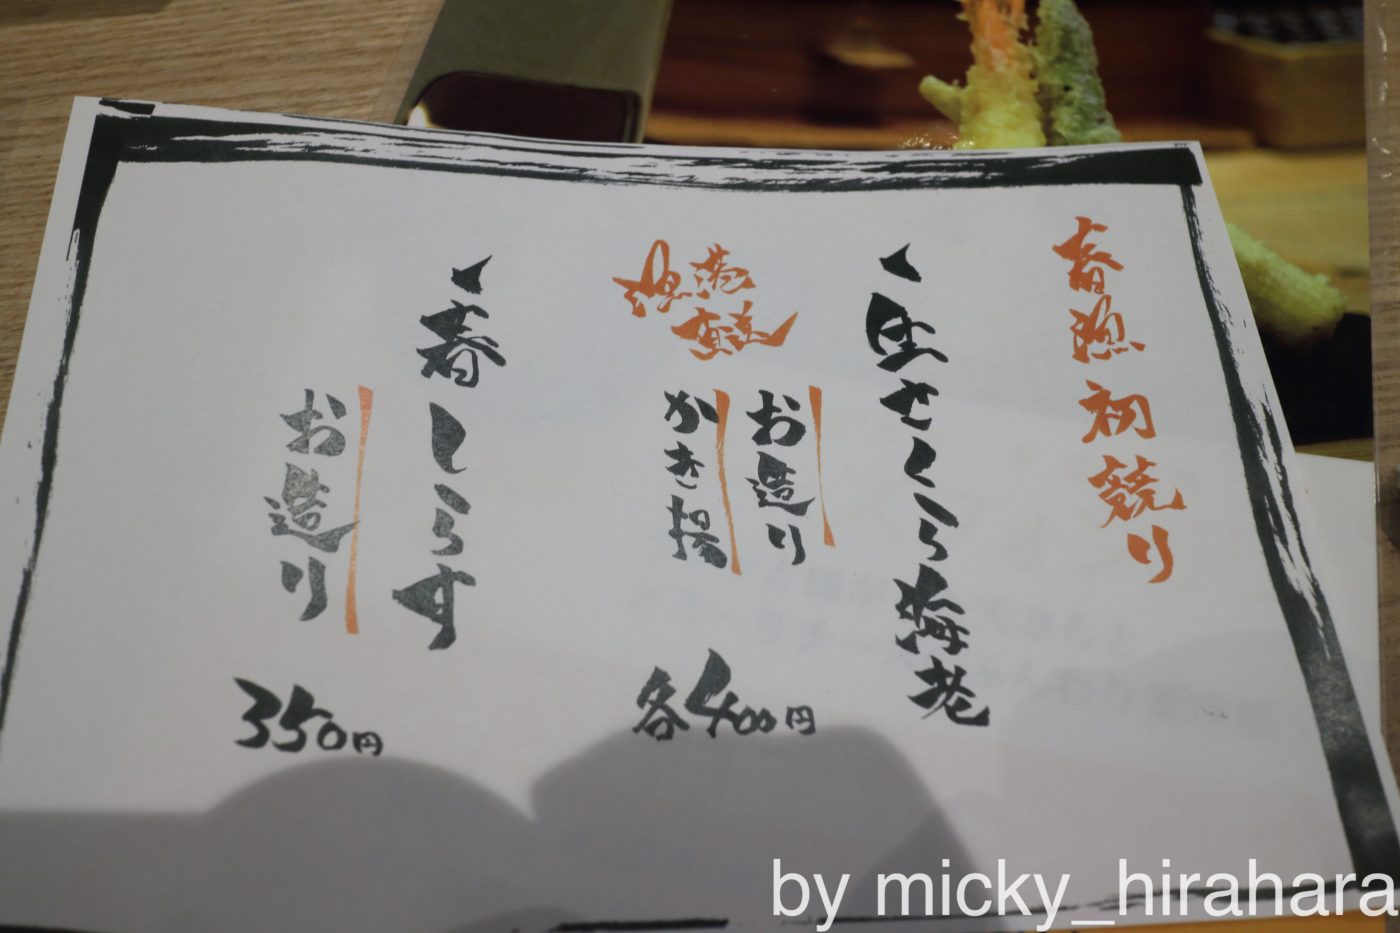 春漁初競り
生さくら海老
お造り
かき揚
漁港直送
各400円
春しらす
お造り
350円
by micky_hirahara